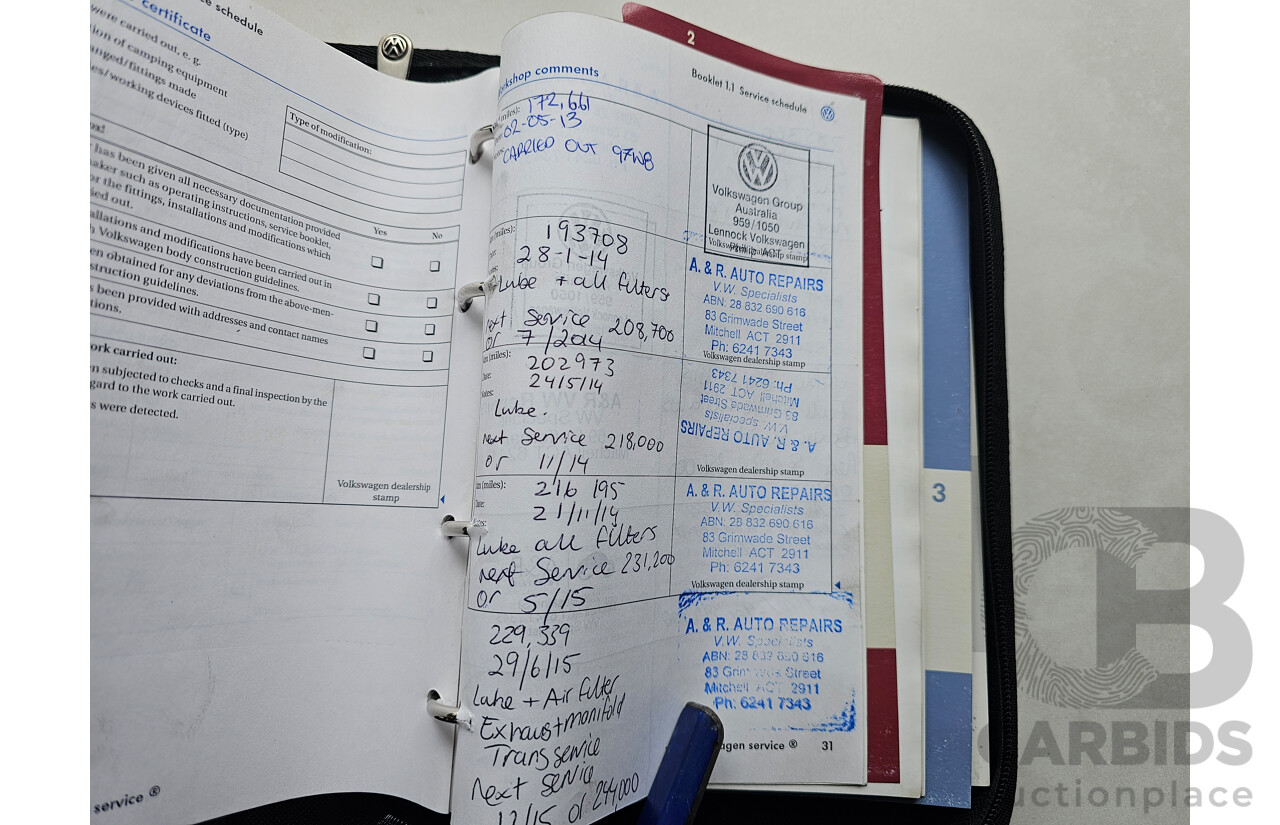 ce schedule
certificate
were carried out, e. g.
ion of camping equipment
anged/fittings made
es/working devices fitted (type)
Type of modification:
has been given all necessary documentation provided
aker such as operating instructions, service booklet,
or the fittings, installations and modifications which
ied out.
Yes No
allations and modifications have been carried out in
Volkswagen body construction guidelines.
en obtained for any deviations from the above-men-
struction guidelines.
s been provided with addresses and contact names
tions.
ork carried out:
n subjected to checks and a final inspection by the
gard to the work carried out.
s were detected.
Volkswagen dealership
stamp
service ®
2
Booklet 1.1 Service schedule
rkshop comments
(miles): 172,661
02-05-13
CARRIED OUT 97WB
Volkswagen Group
Australia
959/1050
Lennock Volkswagen
Phillip ACT
Volkswagen dealership stamp
(miles): 193708
28-1-14
Lube + all filters
next Service 208,700
or 7/2014
A. & R. AUTO REPAIRS
V.W. Specialists
ABN: 28 832 690 616
83 Grimwade Street
Mitchell ACT 2911
Ph: 6241 7343
Volkswagen dealership stamp
m (miles): 202973
Date: 24/5/14
Notes:
Lube.
next Service 218,000
or 11/14
A. & R. AUTO REPAIRS
V.W. Specialists
83 Grimwade Street
Mitchell ACT 2911
Ph: 6241 7343
Volkswagen dealership stamp
m (miles): 216 195
21/11/14
Lube all filters
next Service 231,200
or 5/15
A. & R. AUTO REPAIRS
V.W. Specialists
ABN: 28 832 690 616
83 Grimwade Street
Mitchell ACT 2911
Ph: 6241 7343
Volkswagen dealership stamp
229,339
29/6/15
Lube + Air filter
Exhaust manifold
Trans service
next service
12/15 or 244,000
A. & R. AUTO REPAIRS
V.W. Specialists
ABN: 28 832 690 616
83 Grimwade Street
Mitchell ACT 2911
Ph: 6241 7343
agen service ® 31
3
CARBIDS
uctionplace